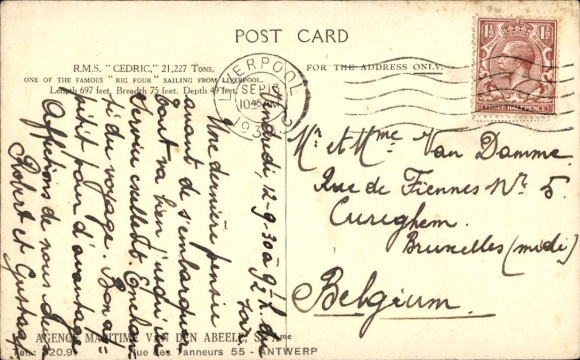 POST CARD
R.M.S. "CEDRIC," 21,227 Tons,
ONE OF THE FAMOUS "BIG FOUR" SAILING FROM LIVERPOOL.
Length 697 feet. Breadth 75 feet. Depth 49 feet.
FOR THE ADDRESS ONLY.
LIVERPOOL
SEP 13
10 45 AM
THREE HALFPENCE
Vendredi, 12-9-30 à 9½ h. du
soir
Une dernière pensée
avant de s'embarquer
tout va bien j'usqu'ici
Service excellent. Enchan
té du voyage. Bon ap-
pétit pour d'avantage
Affections de nous deux
Robert et Gustave
Mr et Mme Van Damme
Rue de Fiennes Nr 5.
Cureghem.
Bruxelles (midi)
Belgium.
AGENCE MARITIME VAN DEN ABEELE, S. Ame
Rue des Tanneurs 55 - ANTWERP